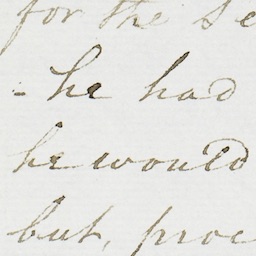 for the se
- he had
he would
but, proc